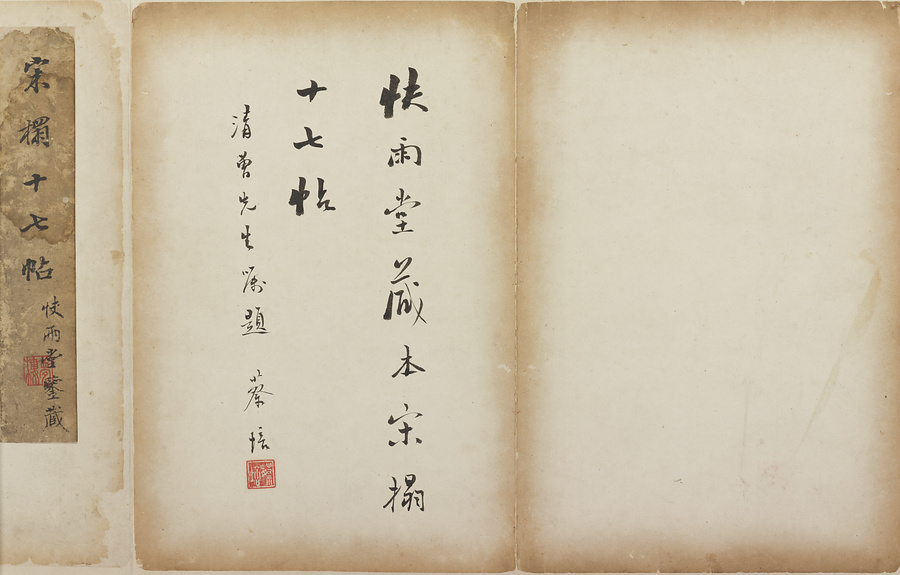 快雨堂藏本宋搨
十七帖
清曾先生嘱題 蔡培
宋搨十七帖
快雨堂鑒藏